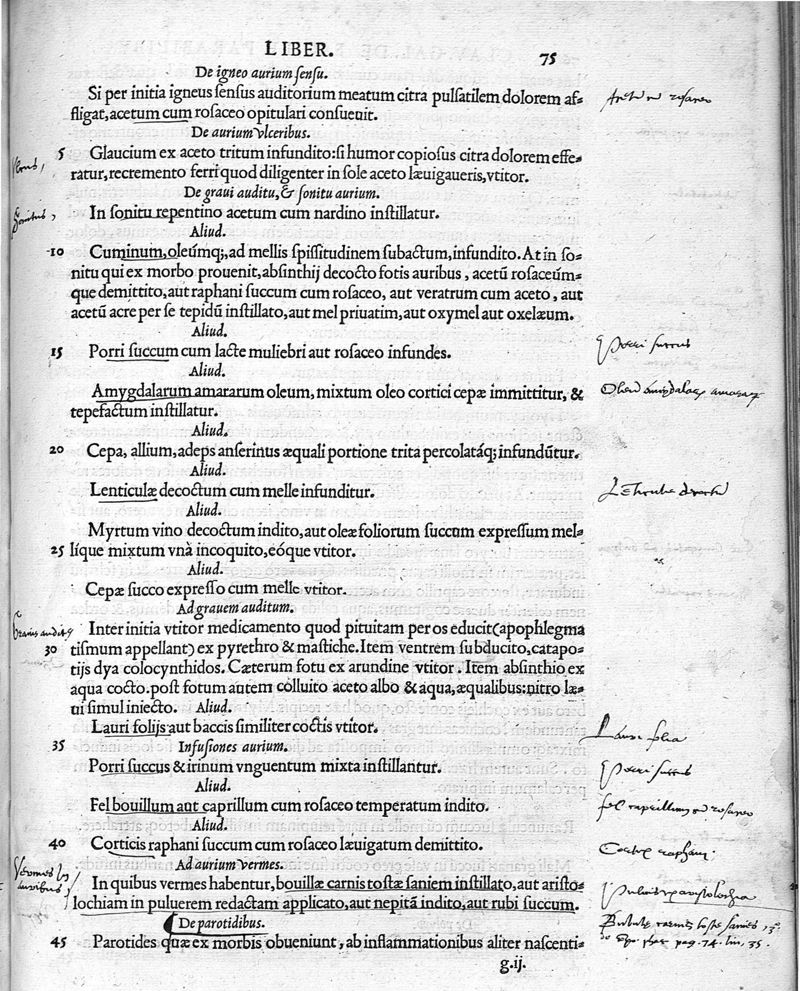 LIBER. 75
De igneo aurium sensu.
Si per initia igneus sensus auditorium meatum citra pulsatilem dolorem af-
fligat, acetum cum rosaceo opitulari consueuit.
De aurium vlceribus.
5 Glaucium ex aceto tritum infundito: si humor copiosus citra dolorem effe-
ratur, recremento ferri quod diligenter in sole aceto læuigaueris, vtitor.
De graui auditu, & sonitu aurium.
In sonitu repentino acetum cum nardino instillatur.
Aliud.
10 Cuminum, oleúmq;, ad mellis spissitudinem subactum, infundito. At in so-
nitu qui ex morbo prouenit, absinthij decocto fotis auribus, acetū rosaceúm-
que demittito, aut raphani succum cum rosaceo, aut veratrum cum aceto, aut
acetū acre per se tepidū instillato, aut mel priuatim, aut oxymel aut oxelæum.
Aliud.
15 Porri succum cum lacte muliebri aut rosaceo infundes.
Aliud.
Amygdalarum amararum oleum, mixtum oleo cortici cepæ immittitur, &
tepefactum instillatur.
Aliud.
20 Cepa, allium, adeps anserinus æquali portione trita percolatáq; infundūtur.
Aliud.
Lenticulæ decoctum cum melle infunditur.
Aliud.
Myrtum vino decoctum indito, aut oleæ foliorum succum expressum mel-
25 líque mixtum vnà incoquito, eóque vtitor.
Aliud.
Cepæ succo expresso cum melle vtitor.
Ad grauem auditum.
Inter initia vtitor medicamento quod pituitam per os educit (apophlegma
30 tismum appellant) ex pyrethro & mastiche. Item ventrem subducito, catapo-
tijs dya colocynthidos. Cæterum fotu ex arundine vtitor. Item absinthio ex
aqua cocto. post fotum autem colluito aceto albo & aqua, æqualibus: nitro læ-
ui simul iniecto. Aliud.
Lauri folijs aut baccis similiter coctis vtitor.
35 Infusiones aurium.
Porri succus & irinum vnguentum mixta instillantur.
Aliud.
Fel bouillum aut caprillum cum rosaceo temperatum indito.
Aliud.
40 Corticis raphani succum cum rosaceo læuigatum demittito.
Ad aurium vermes.
In quibus vermes habentur, bouillæ carnis tostæ saniem instillato, aut aristo-
lochiam in puluerem redactam applicato, aut nepitā indito, aut rubi succum.
De parotidibus.
45 Parotides quæ ex morbis obueniunt, ab inflammationibus aliter nascenti-
g.ij.
Sonitus,
Porri succus
Lauri folia
Porri succus
fel caprillum
Cortex raphani
Vermes
auribus
pag. 74. lin. 35.